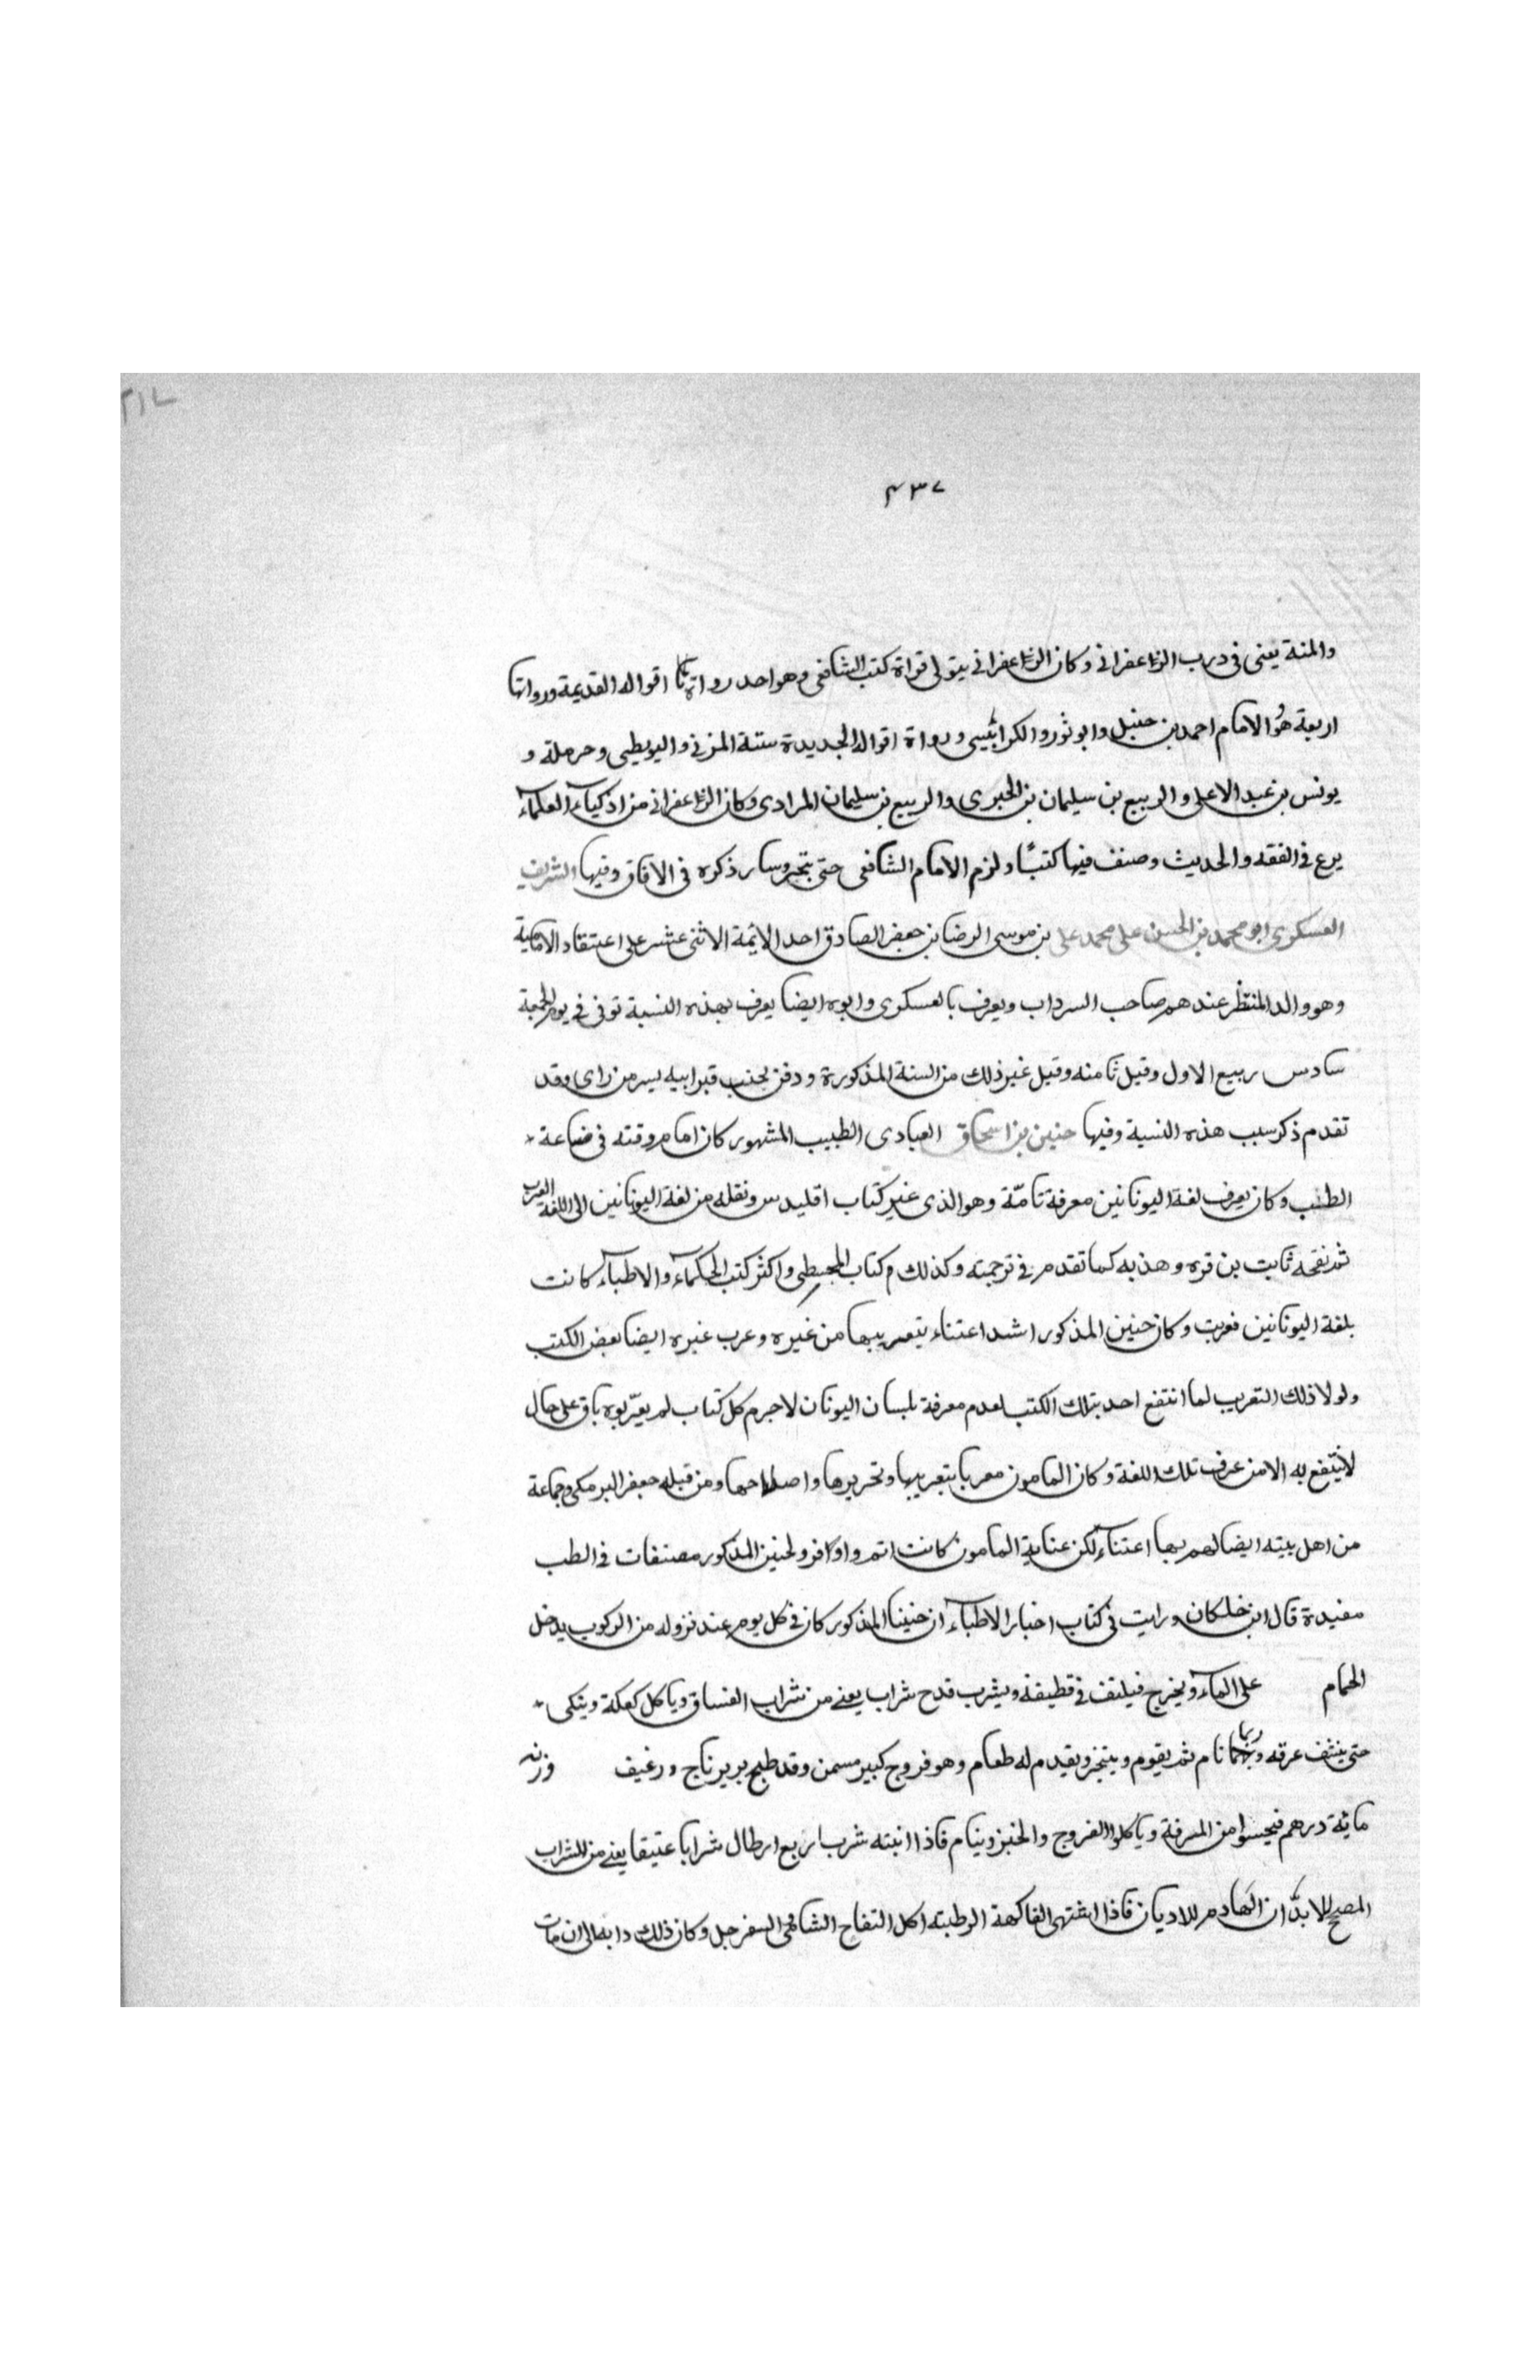 ٢١٧
٤٣٧
والمنة يعنى فى درب الزعفرانى وكان الزعفرانى يتولى قراة كتب الشافعى وهو احد رواة اقواله القديمة ورواتها
اربعة هو الامام احمد بن حنبل وابو ثور والكرابيسى ورواة اقواله الجديدة ستة المزنى والبويطى وحرملة و
يونس بن عبد الاعلى والربيع بن سليمان بن الجيزى والربيع بن سليمان المرادى وكان الزعفرانى من اذكياء العلماء
برع فى الفقه والحديث وصنف فيها كتبًا ولزم الامام الشافعى حتى تبحر وسار ذكره فى الافاق وفيها الشريف
العسكرى ابو محمد بن الحسن على محمد على بن موسى الرضا بن جعفر الصادق احد الائمة الاثنى عشر على اعتقاد الامامية
وهو والد المنتظر عندهم صاحب السرداب ويعرف بالعسكرى وابوه ايضا يعرف بهذه النسبة توفى فى يوم الجمعة
سادس ربيع الاول وقيل ثامنه وقيل غير ذلك من السنة المذكورة ودفن بجنب قبر ابيه بسر من راى وقد
تقدم ذكر سبب هذه النسبة وفيها حنين بن اسحاق العبادى الطبيب المشهور كان امام وقته فى صناعة
الطب وكان يعرف لغة اليونانين معرفة تامّة وهو الذى عرب كتاب اقليدس ونقله من لغة اليونانين الى اللغة العرب
ثم نقحه ثابت بن قره وهذبه كما تقدم فى ترجمته وكذلك كتاب المجسطى واكثر كتب الحكماء والاطباء كانت
بلغة اليونانين فعربت وكان حنين المذكور اشد اعتناء بتعريبها من غيره وعرب غيره ايضا بعض الكتب
ولولا ذلك التعريب لما انتفع احد بتلك الكتب لعدم معرفة بلسان اليونان لاجرم كل كتاب لم يعرّبوه باق على حال
لا ينتفع به الا من عرف تلك اللغة وكان المامون مغربا بتعريبها وتحريرها واصلاحها ومن قبله جعفر البرمكى وجماعة
من اهل بيته ايضا لهم بها اعتناء لكن عناية المامون كانت اتم واوفر ولحنين المذكور مصنفات فى الطب
مفيدة قال ابن خلكان ورايت فى كتاب اخبار الاطباء ان حنينا المذكور كان فى كل يوم عند نزوله من الركوب يدخل
الحمام على الماء ويخرج فيلتف فى قطيفة ويشرب قدح شراب يعنى من شراب الفساق وياكل كعكة ويتكى
حتى ينشف عرقه وربما نام ثم يقوم ويتبخر ويقدم له طعام وهو فروج كبير مسمن وقد طبخ بريرناج ورغيف وزنه
مائة درهم فيحسوا من المرقة وياكلوا الفروج والخبز وينام فاذا انتبه شرب اربع ارطال شرابا عتيقا يعنى من الشراب
المصح للابدان الهادم للاديان فاذا اشتهى الفاكهة الرطبته اكل التفاح الشامى السفرجل وكان ذلك دابه الى ان مات